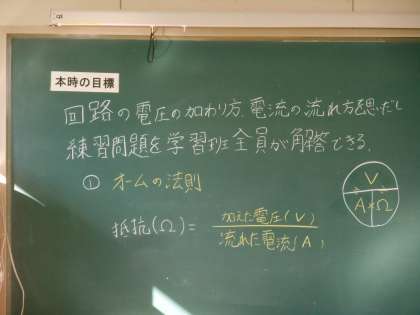 本時の目標
回路の電圧の加わり方、電流の流れ方を思いだし
練習問題を学習班全員が解答できる。
① オームの法則
抵抗(Ω) = 加えた電圧(V)
流れた電流(A)
V
A×Ω